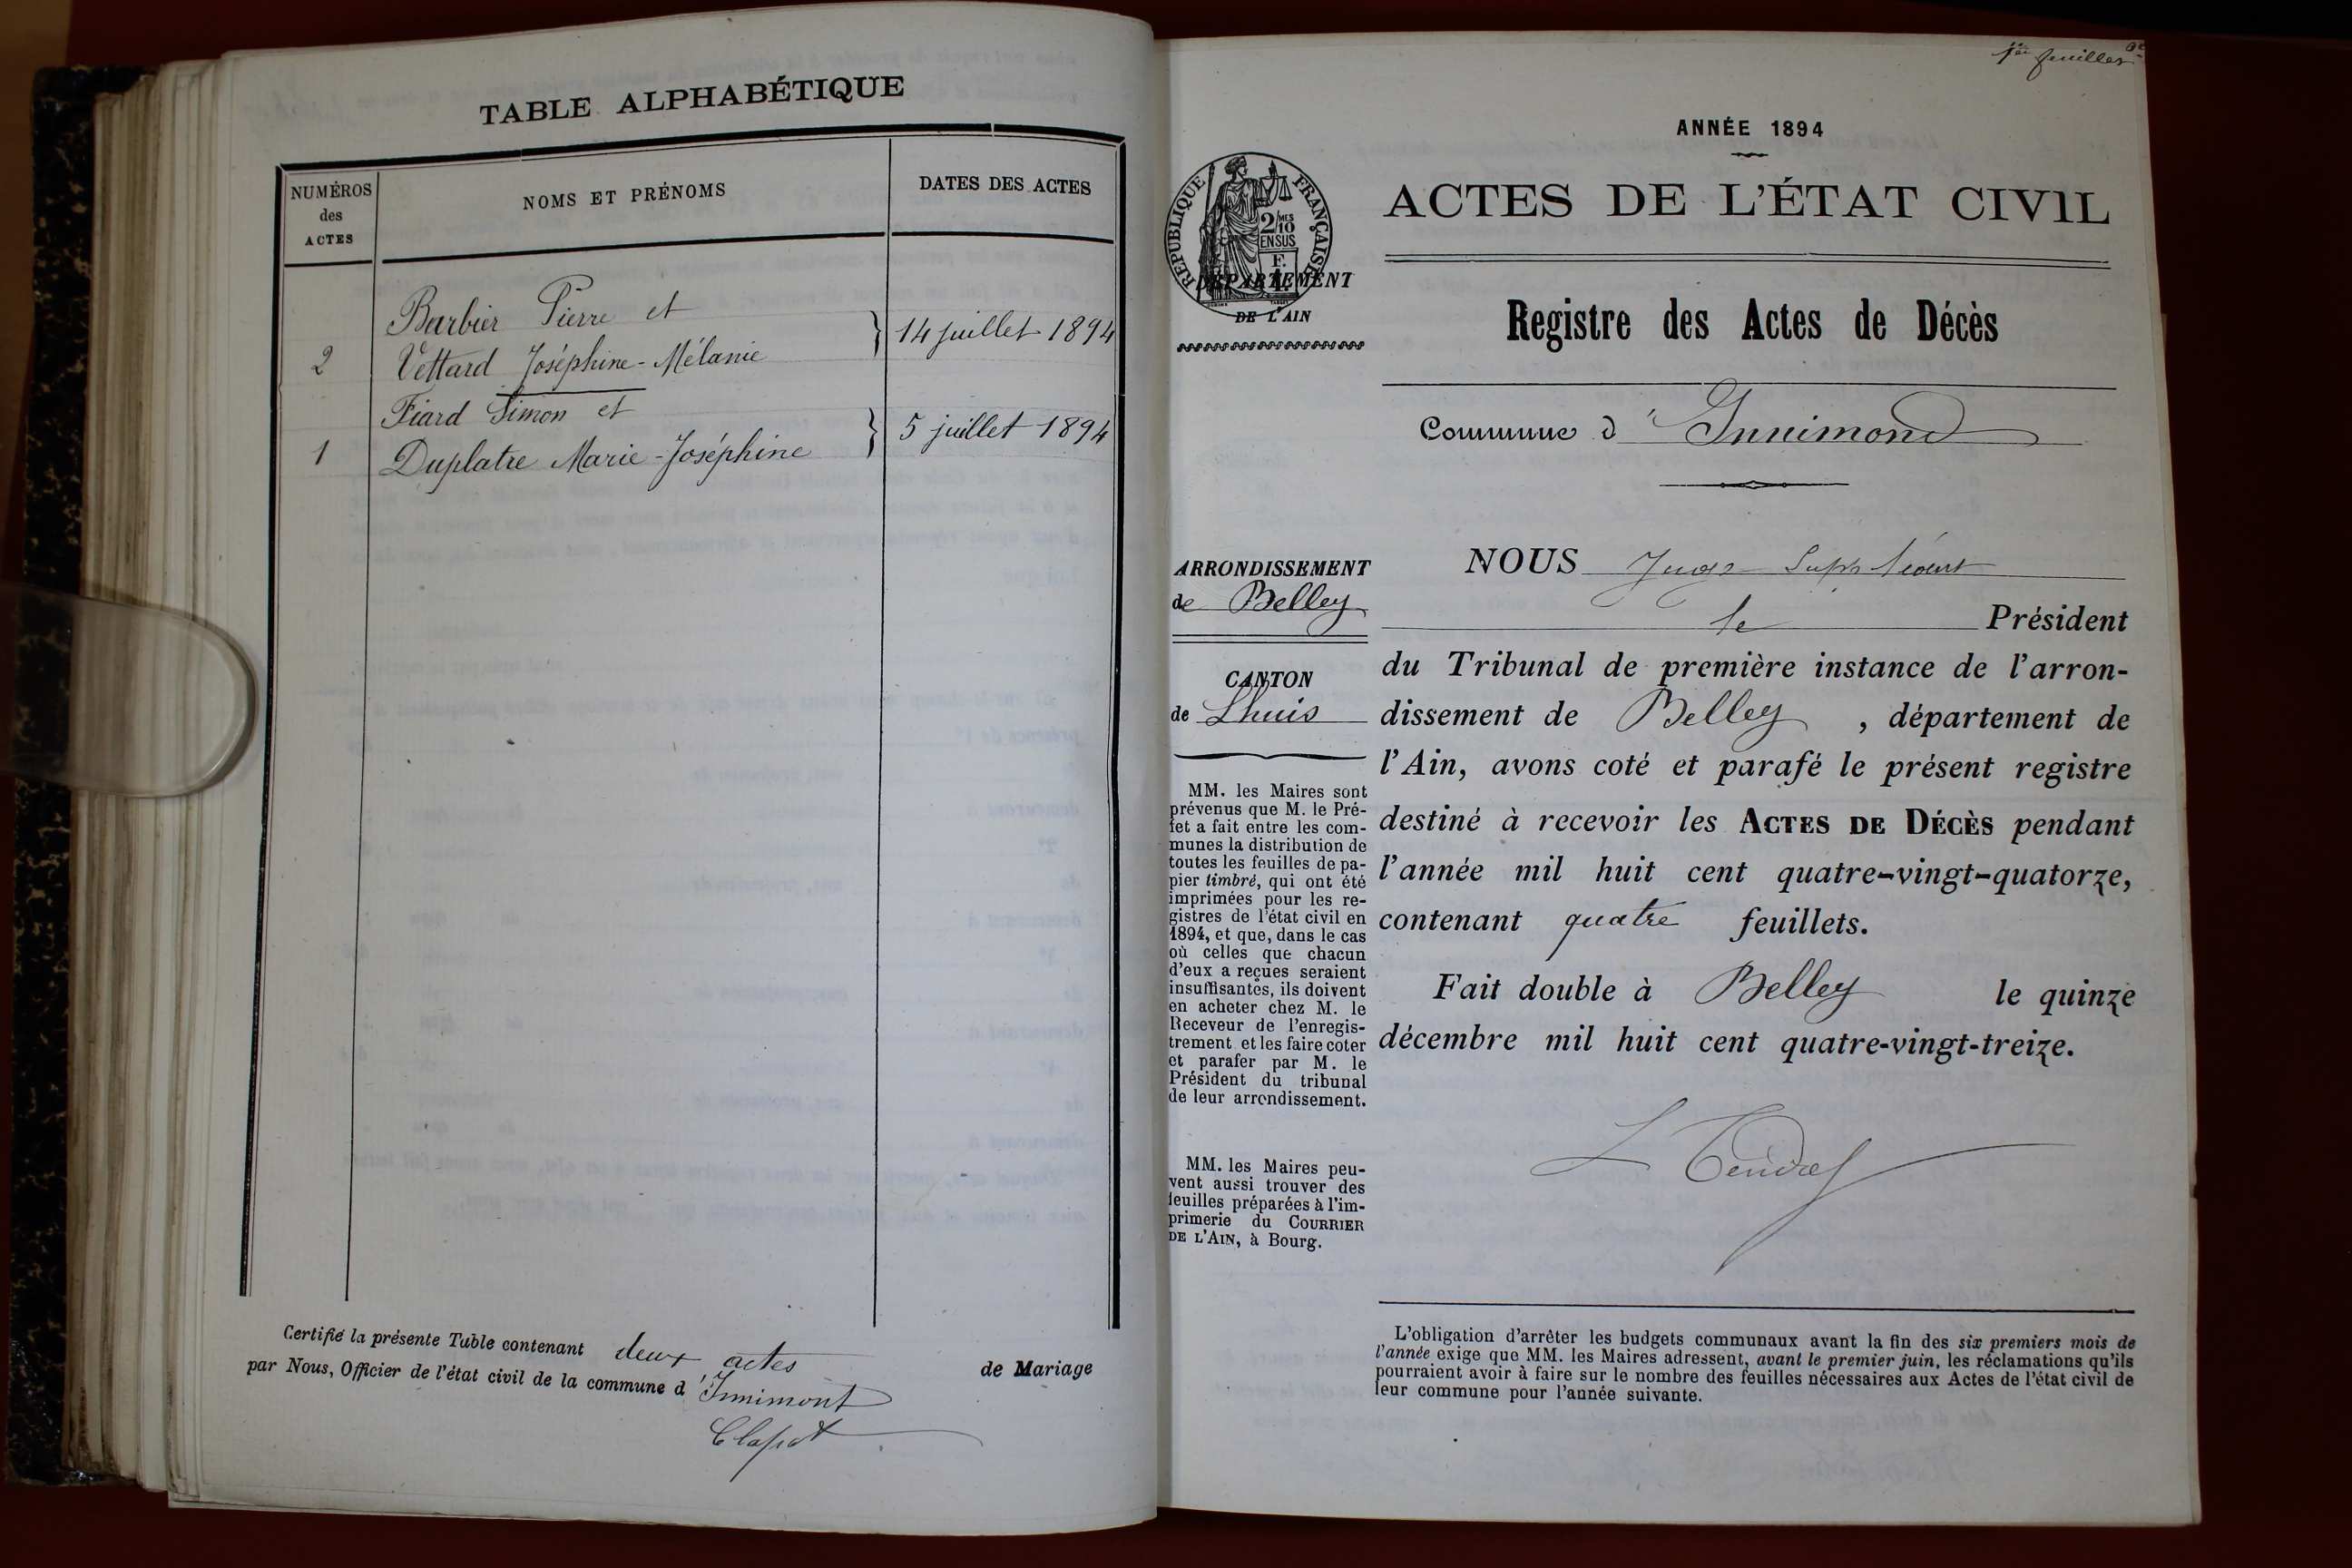 TABLE ALPHABÉTIQUE
NUMÉROS
des
ACTES
NOMS ET PRÉNOMS
DATES DES ACTES
Barbier Pierre et
2 Vettard Joséphine-Mélanie } 14 juillet 1894
Fiard Simon et
1 Duplatre Marie-Joséphine } 5 juillet 1894
Certifié la présente Table contenant deux actes de Mariage
par Nous, Officier de l'état civil de la commune d'Innimont
Clapot
1er feuillet
ANNÉE 1894
ACTES DE L'ÉTAT CIVIL
RÉPUBLIQUE FRANÇAISE
2/10 MES
EN SUS
F.
DÉPARTEMENT
DE L'AIN
Registre des Actes de Décès
Commune d'Innimond
ARRONDISSEMENT
de Belley
CANTON
de Lhuis
MM. les Maires sont
prévenus que M. le Pré-
fet a fait entre les com-
munes la distribution de
toutes les feuilles de pa-
pier timbré, qui ont été
imprimées pour les re-
gistres de l'état civil en
1894, et que, dans le cas
où celles que chacun
d'eux a reçues seraient
insuffisantes, ils doivent
en acheter chez M. le
Receveur de l'enregis-
trement et les faire coter
et parafer par M. le
Président du tribunal
de leur arrondissement.
MM. les Maires peu-
vent aussi trouver des
feuilles préparées à l'im-
primerie du COURRIER
DE L'AIN, à Bourg.
NOUS Juge Suppléant
le Président
du Tribunal de première instance de l'arron-
dissement de Belley, département de
l'Ain, avons coté et parafé le présent registre
destiné à recevoir les ACTES DE DÉCÈS pendant
l'année mil huit cent quatre-vingt-quatorze,
contenant quatre feuillets.
Fait double à Belley le quinze
décembre mil huit cent quatre-vingt-treize.
L'obligation d'arrêter les budgets communaux avant la fin des six premiers mois de
l'année exige que MM. les Maires adressent, avant le premier juin, les réclamations qu'ils
pourraient avoir à faire sur le nombre des feuilles nécessaires aux Actes de l'état civil de
leur commune pour l'année suivante.